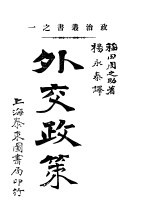 政治叢書之一
稲田周之助著
楊永泰譯
外交政策
上海泰東圖書局印行